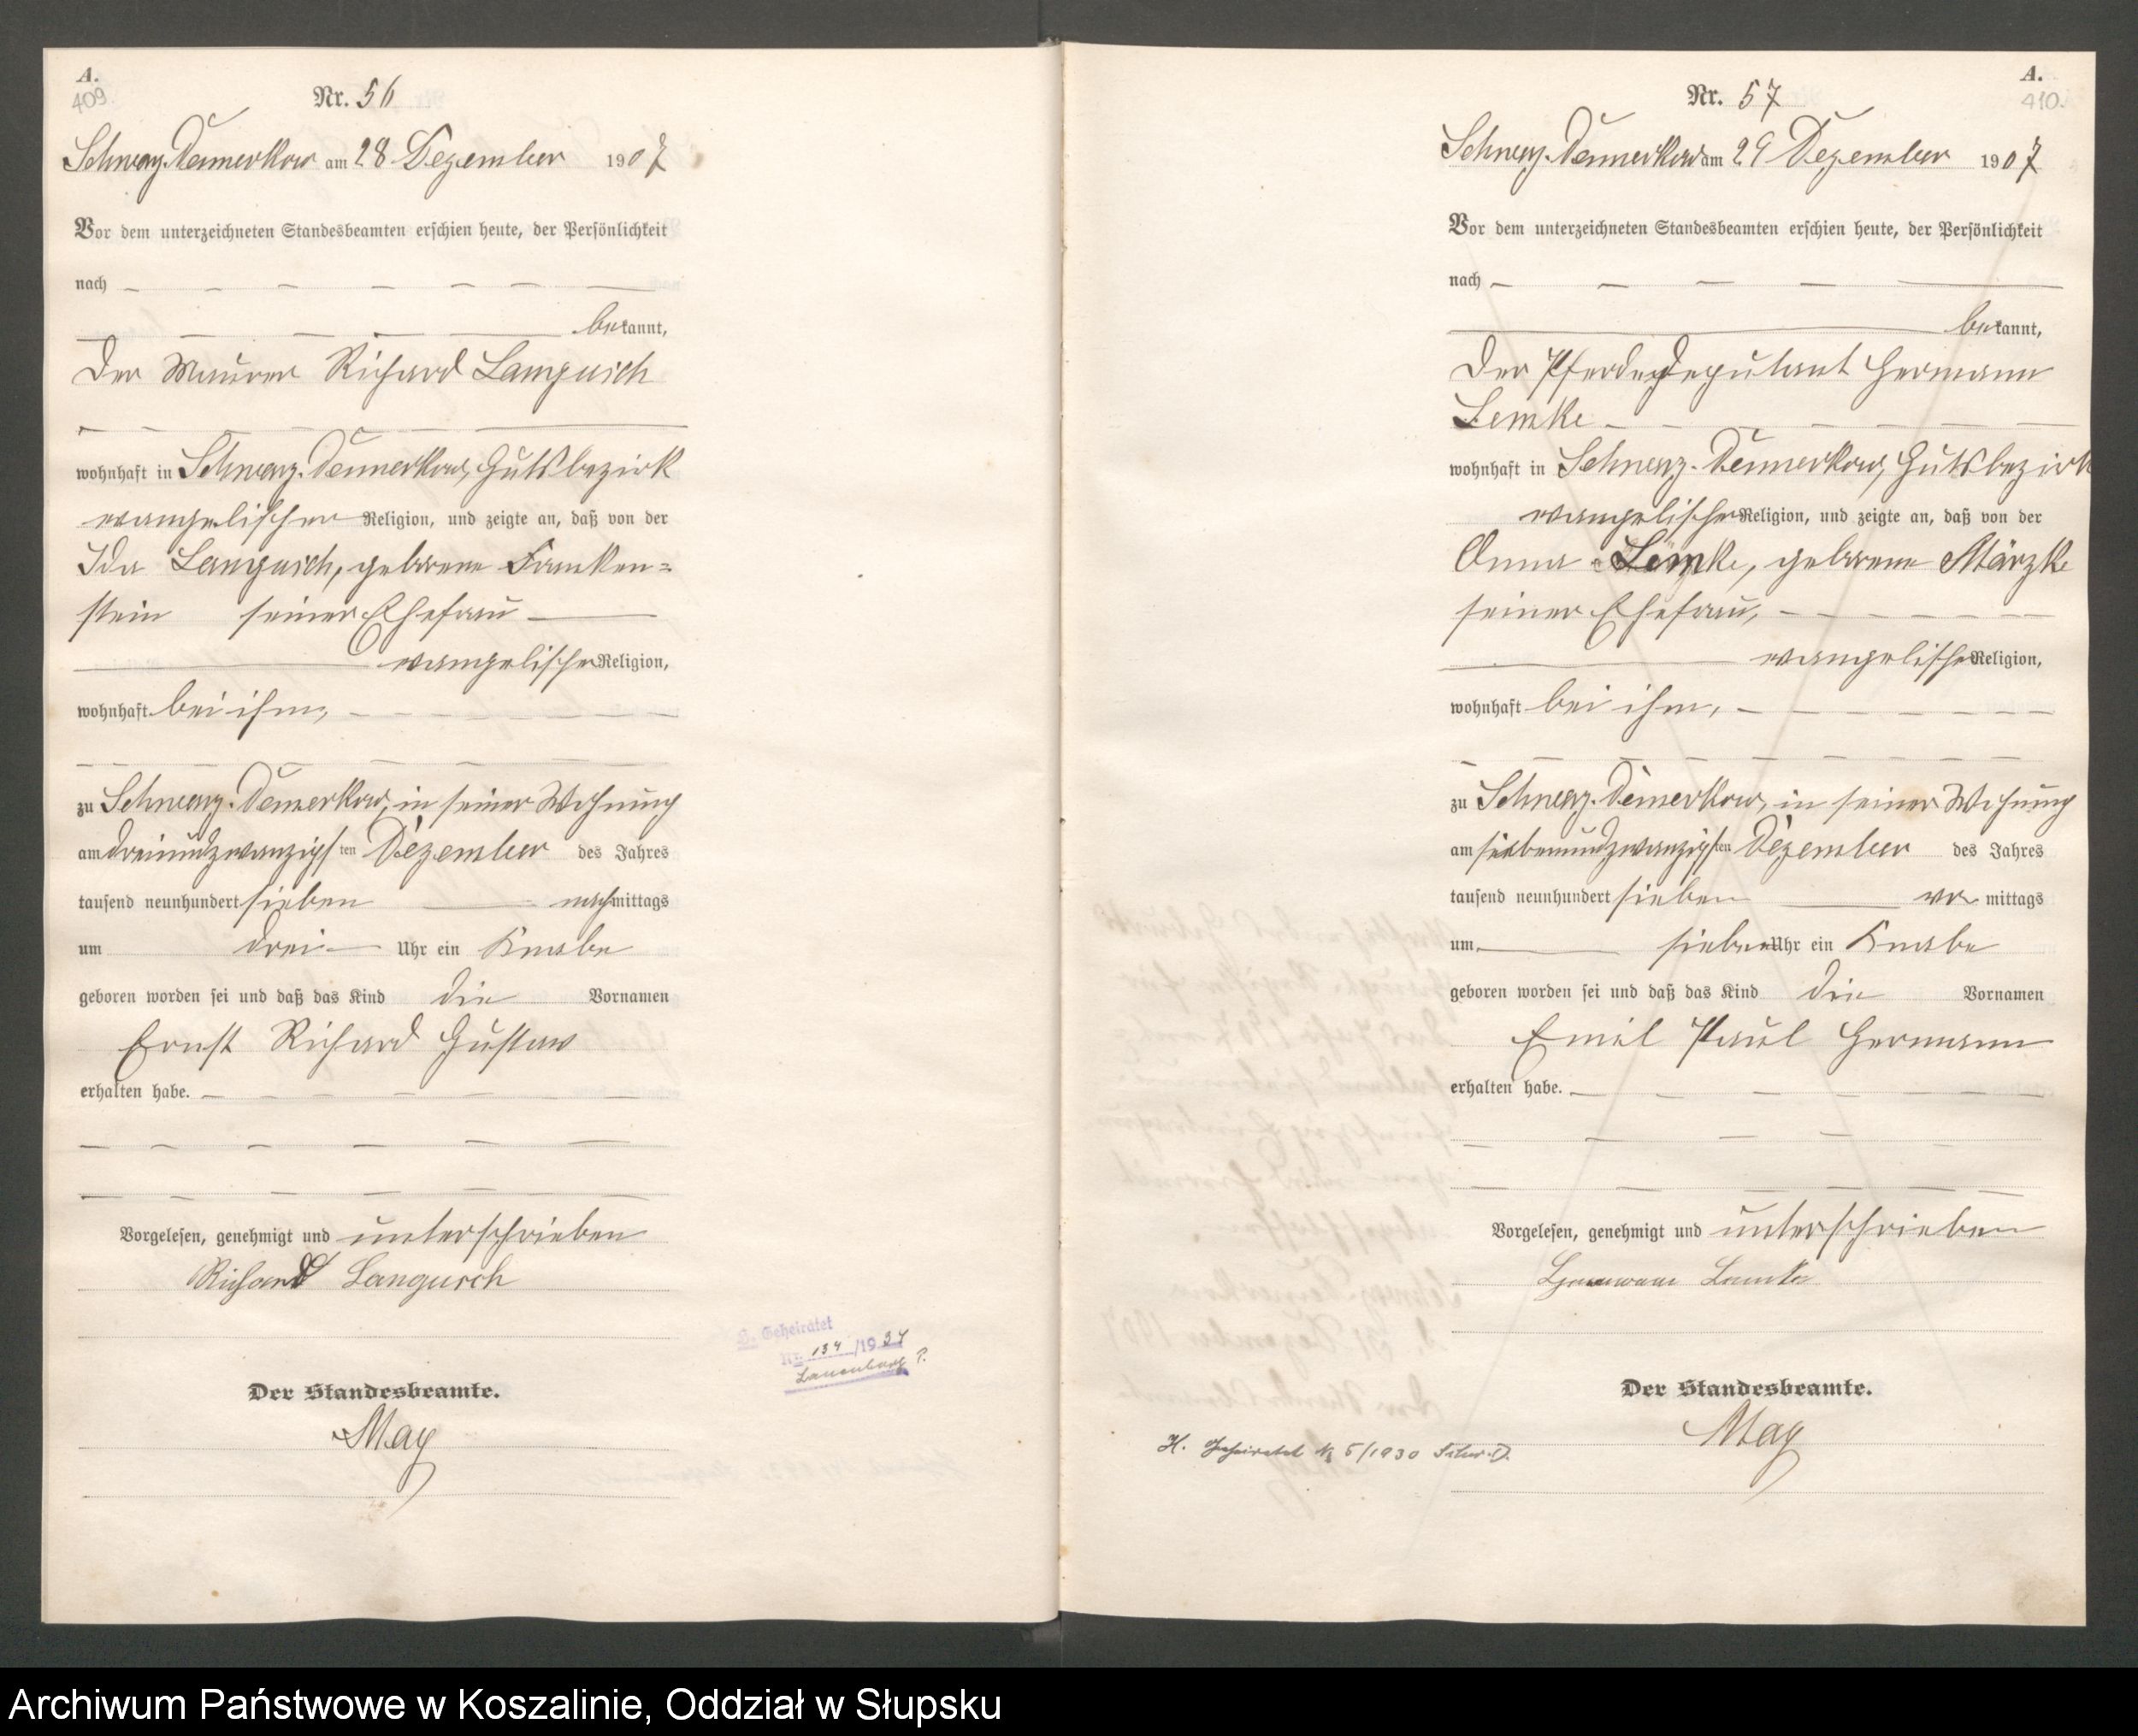 A.
409.
Nr. 56
Schwarz-Damerkow am 28 Dezember 1907
Vor dem unterzeichneten Standesbeamten erschien heute, der Persönlichkeit
nach
bekannt,
der Maurer Richard Langusch
wohnhaft in Schwarz-Damerkow, Gutsbezirk
evangelischer Religion, und zeigte an, daß von der
Ida Langusch, geborene Franken=
stein seiner Ehefrau
evangelischer Religion,
wohnhaft bei ihm,
zu Schwarz-Damerkow, in seiner Wohnung
am dreiundzwanzigsten Dezember des Jahres
tausend neunhundert sieben nachmittags
um drei Uhr ein Knabe
geboren worden sei und daß das Kind die Vornamen
Ernst Richard Gustav
erhalten habe.
Vorgelesen, genehmigt und unterschrieben
Richard Langusch
Der Standesbeamte.
May
G. Geheiratet
Nr. 134/1934
Lauenburg P.
A.
410.
Nr. 57
Schwarz-Damerkow am 29 Dezember 1907
Vor dem unterzeichneten Standesbeamten erschien heute, der Persönlichkeit
nach
bekannt,
der Pferdedeputant Hermann
Lemke
wohnhaft in Schwarz-Damerkow, Gutsbezirk
evangelischer Religion, und zeigte an, daß von der
Anna Lemke, geborene Märzke
seiner Ehefrau,
evangelischer Religion,
wohnhaft bei ihm,
zu Schwarz-Damerkow, in seiner Wohnung
am siebenundzwanzigsten Dezember des Jahres
tausend neunhundert sieben vor mittags
um sieben Uhr ein Knabe
geboren worden sei und daß das Kind die Vornamen
Emil Paul Hermann
erhalten habe.
Vorgelesen, genehmigt und unterschrieben
Hermann Lemke
Der Standesbeamte.
May
H. Geheiratet Nr 5/1930 Schw. D.
Archiwum Państwowe w Koszalinie, Oddział w Słupsku